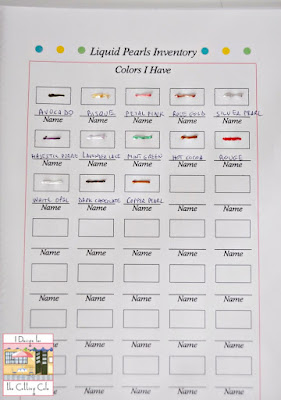 Liquid Pearls Inventory
Colors I Have
AVOCADO BISQUE PETAL PINK ROSE GOLD SILVER PEARL
Name Name Name Name Name
LAVENDER LACE MINT GREEN HOT COCOA ROUGE
Name Name Name Name Name
WHITE OPAL DARK CHOCOLATE COPPER PEARL
Name Name Name Name Name
Name Name Name Name Name
Name Name Name Name Name
Name Name Name Name Name
Name Name Name Name
I Design for
the Cutting Cafe